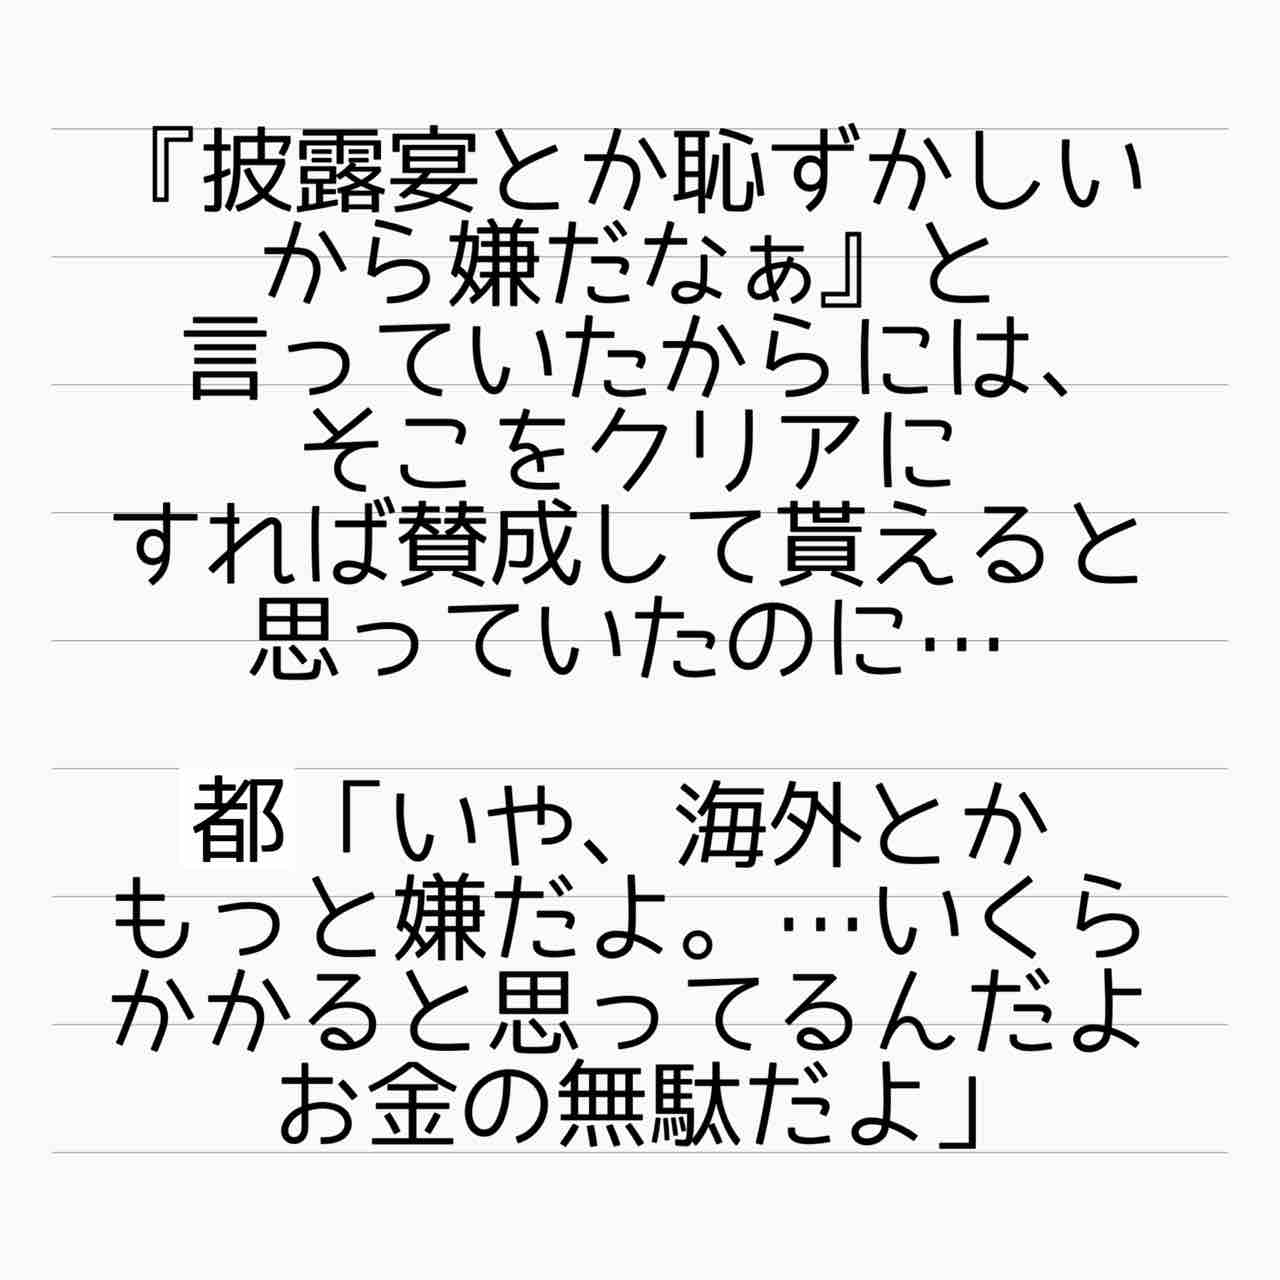 『披露宴とか恥ずかしい
から嫌だなぁ』と
言っていたからには、
そこをクリアに
すれば賛成して貰えると
思っていたのに…
都「いや、海外とか
もっと嫌だよ。…いくら
かかると思ってるんだよ
お金の無駄だよ」